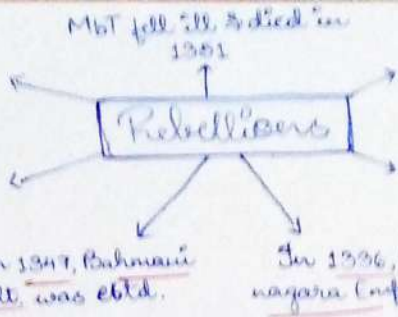 MbT fell ill & died in
1351
Rebellions
In 1347, Bahmani
was estd.
In 1336,
nagara